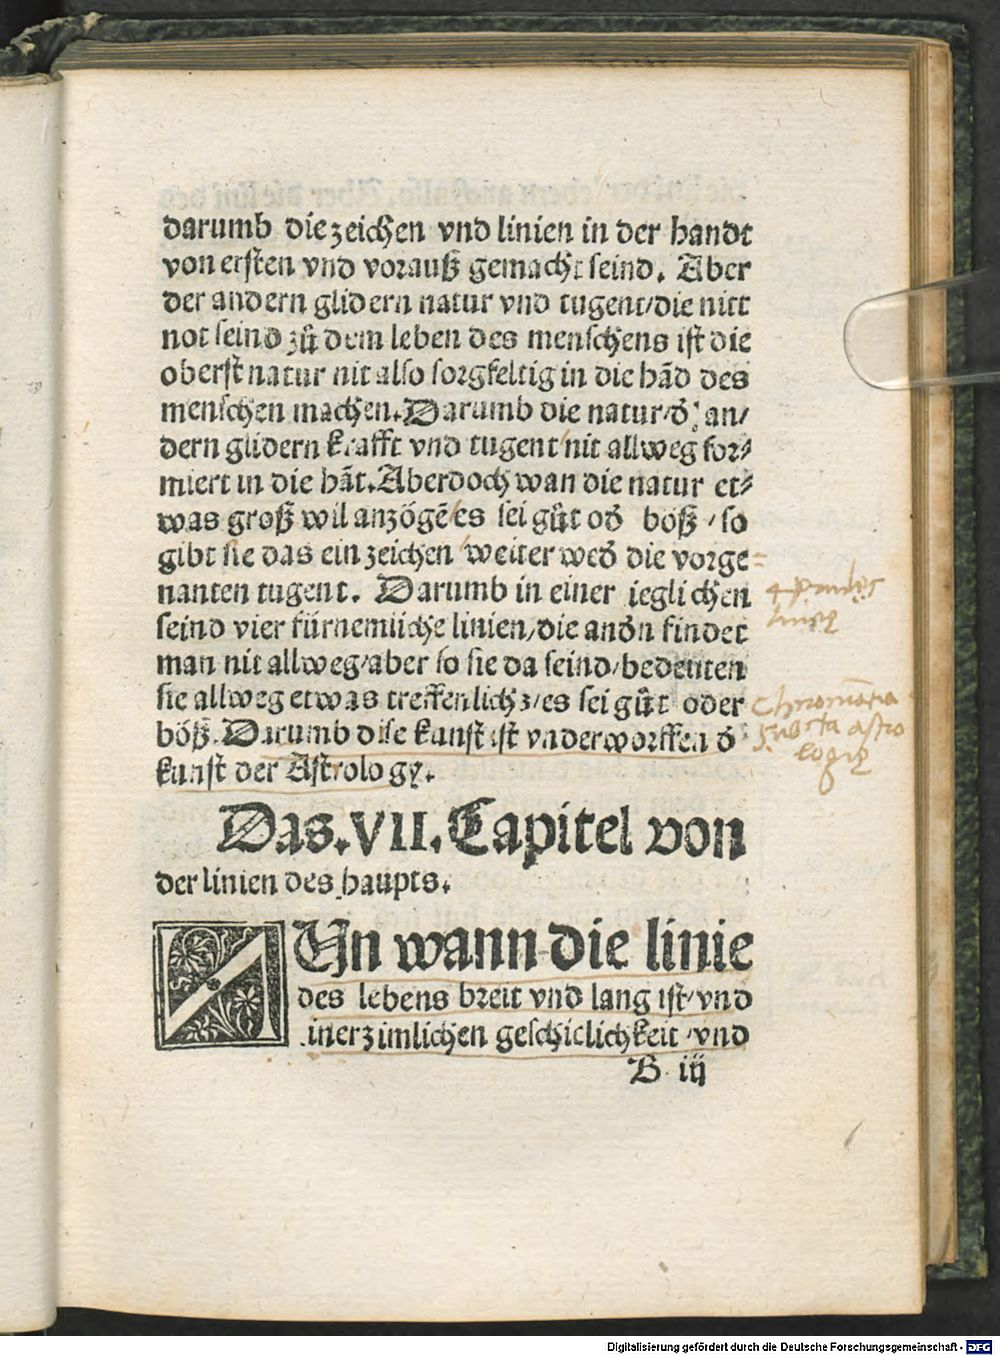 darumb die zeichen vnd linien in der handt
von ersten vnd vorauß gemacht seind. Aber
der andern glidern natur vnd tugent/die nitt
not seind zů dem leben des menschens ist die
oberst natur nit also sorgfeltig in die hād des
menschen machen. Darumb die natur/đ an/
dern glidern krafft vnd tugent/nit allweg for⸗
miert in die hāt. Aber doch wan die natur et⸗
was groß wil anzögē/es sei gůt ođ böß/so
gibt sie das ein zeichen/weiter weđ die vorge⸗
nanten tugent. Darumb in einer ieglichen
seind vier fürnemliche linien/die anđn findet
man nit allweg/aber so sie da seind/bedeuten
sie allweg etwas treffenlichz/es sei gůt oder
böß. Darumb dise kunst ist vnderworffen đ
kunst der Astrology.
4
Chiromātia
astro
logię
Das .VII. Capitel von
der linien des haupts.
NUn wann die linie
des lebens breit vnd lang ist/vnd
inerzimlichen geschicklichkeit/vnd
B iij
Digitalisierung gefördert durch die Deutsche Forschungsgemeinschaft - DFG